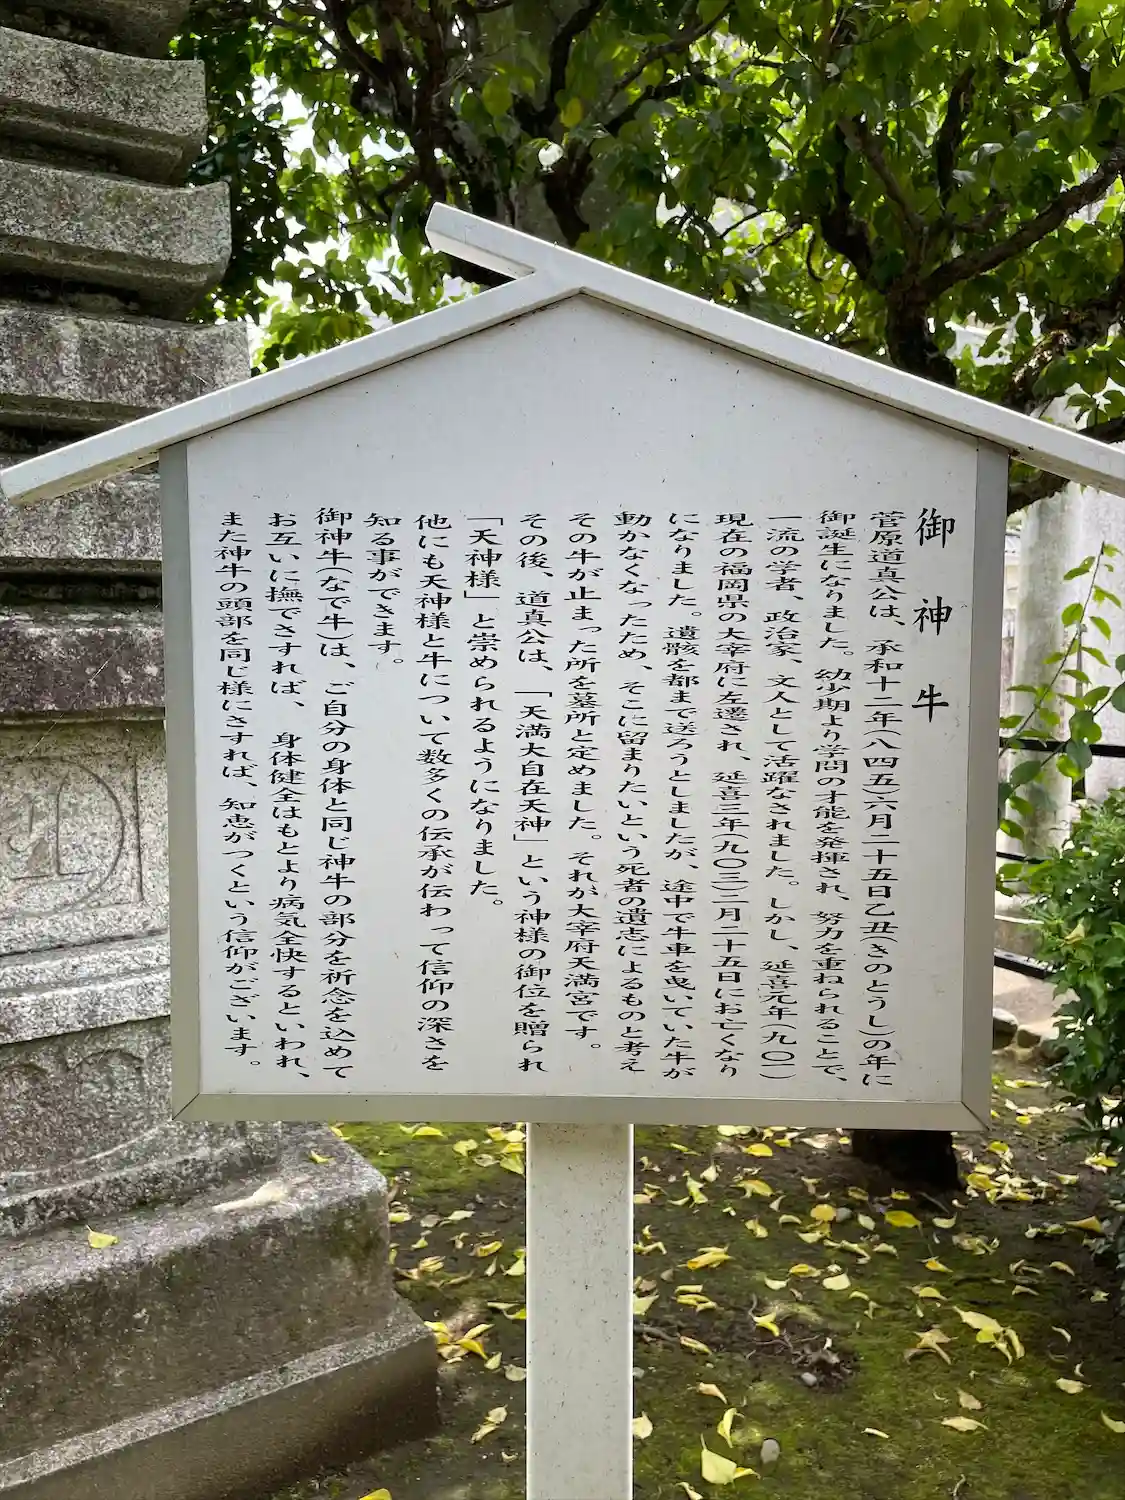 御神牛
菅原道真公は、承和十二年(八四五)六月二十五日乙丑(きのとうし)の年に
御誕生になりました。幼少期より学問の才能を発揮され、努力を重ねられることで、
一流の学者、政治家、文人として活躍なされました。しかし、延喜元年(九〇一)
現在の福岡県の大宰府に左遷され、延喜三年(九〇三)二月二十五日にお亡くなり
になりました。遺骸を都まで送ろうとしましたが、途中で牛車を曳いていた牛が
動かなくなったため、そこに留まりたいという死者の遺志によるものと考え
その牛が止まった所を墓所と定めました。それが大宰府天満宮です。
その後、道真公は、「天満大自在天神」という神様の御位を贈られ
「天神様」と崇められるようになりました。
他にも天神様と牛について数多くの伝承が伝わって信仰の深さを
知る事ができます。
御神牛(なで牛)は、ご自分の身体と同じ神牛の部分を祈念を込めて
お互いに撫でさすれば、身体健全はもとより病気全快するといわれ、
また神牛の頭部を同じ様にさすれば、知恵がつくという信仰がございます。